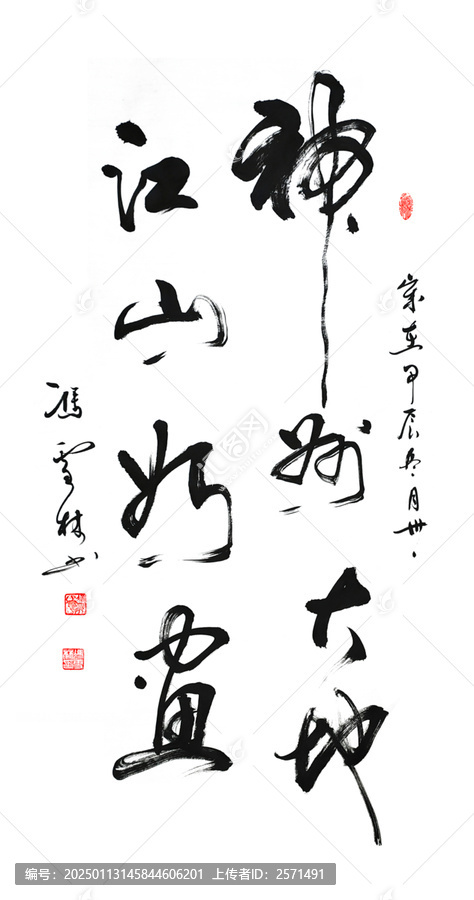 歲在甲辰冬月卅
神州大地
江山如畫
馮雪林书
编号：20250113145844606201 上传者ID：2571491